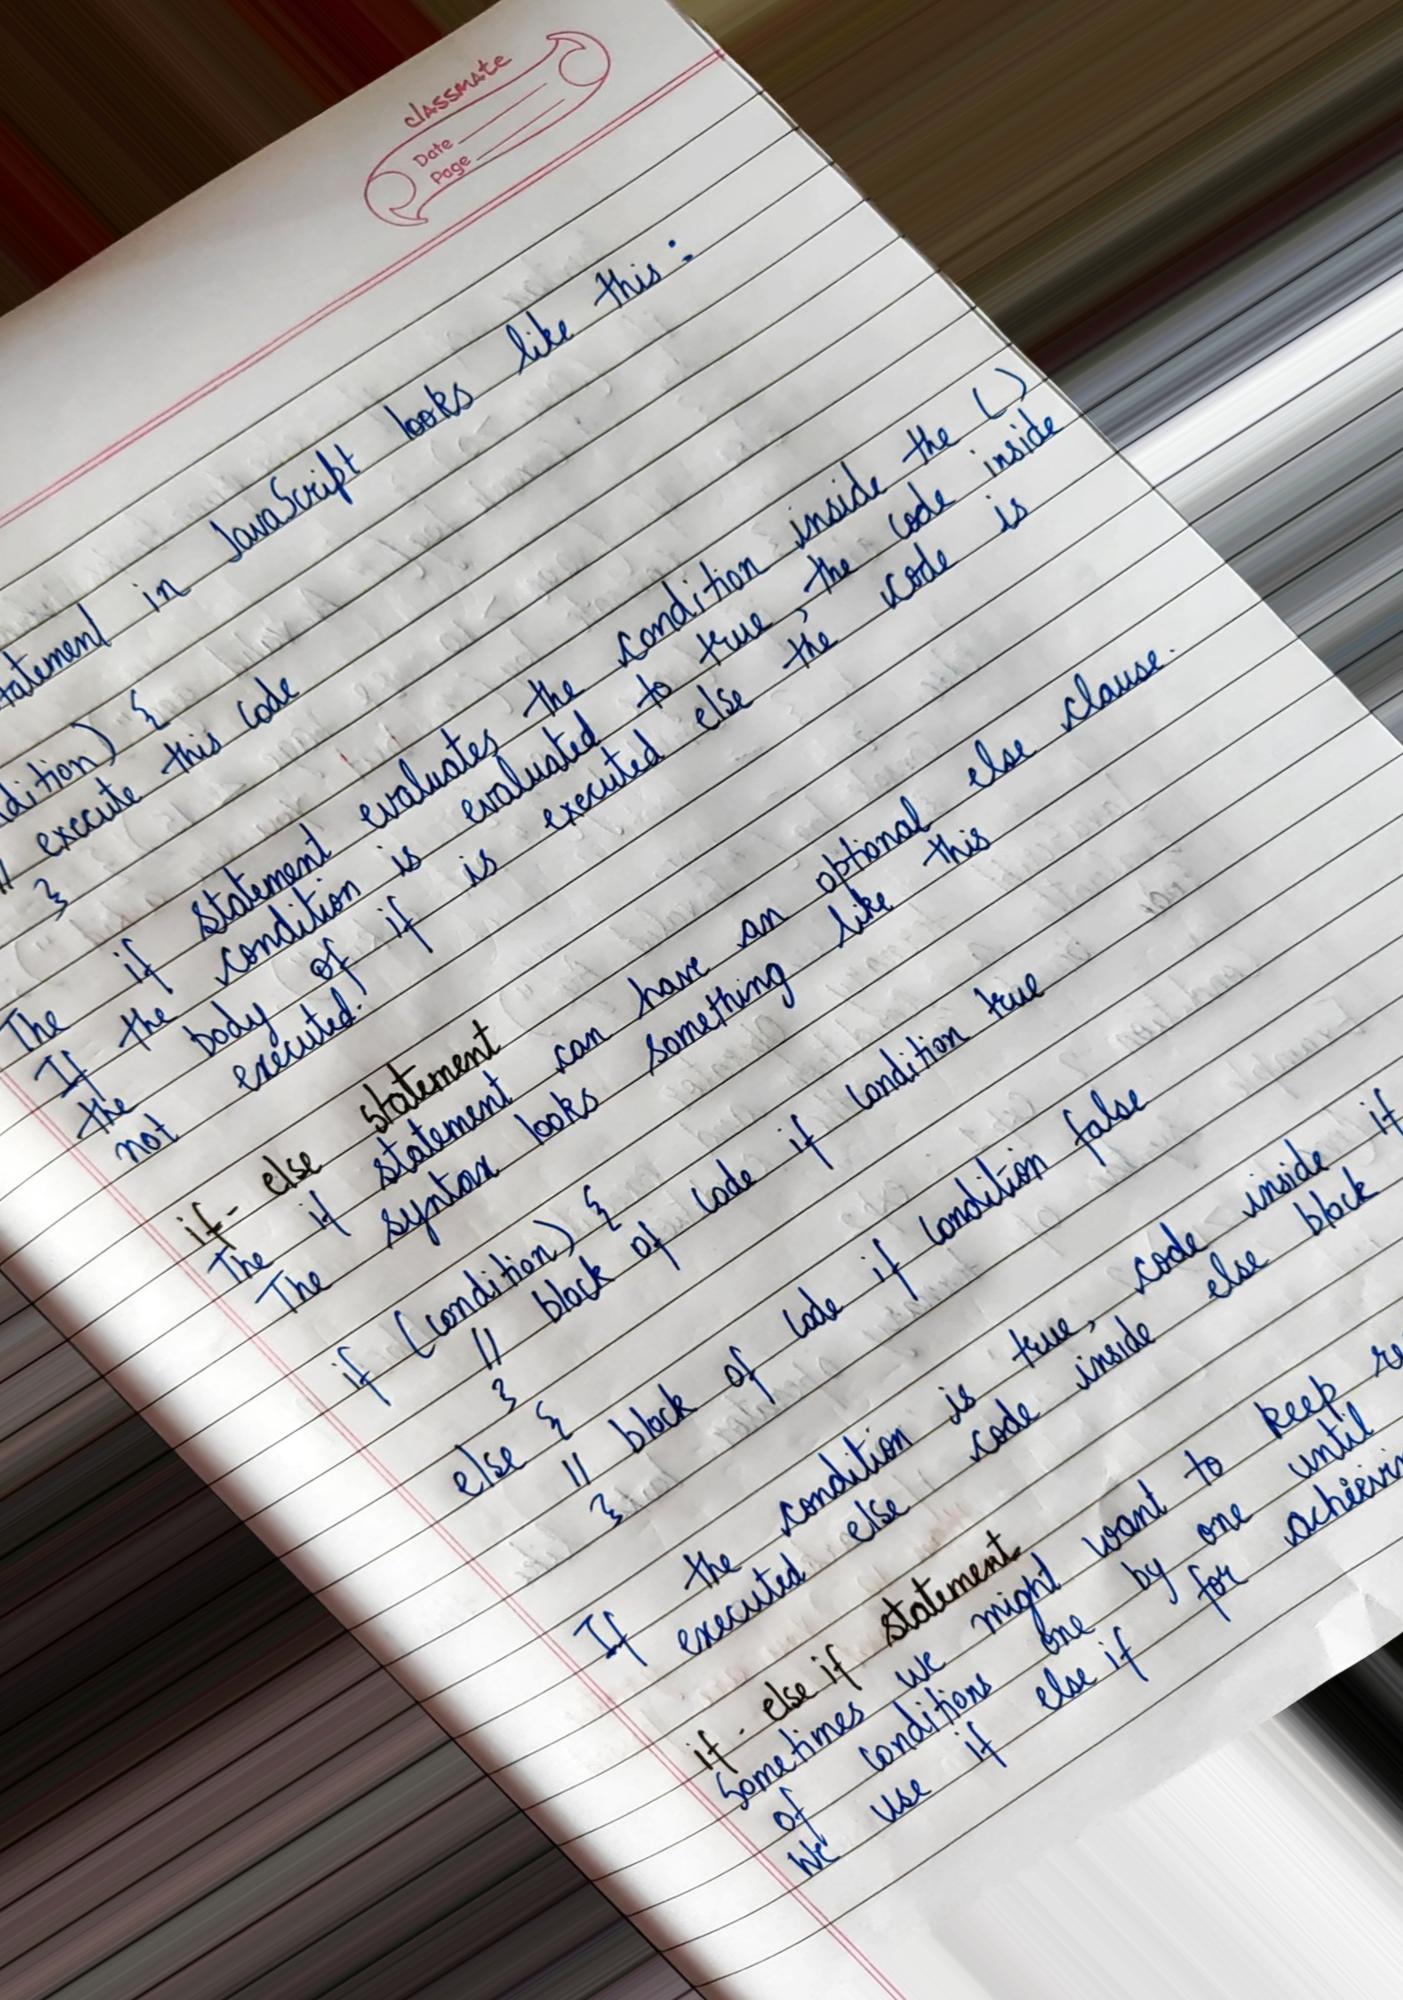 classmate
Date
Page
in JavaScript looks like this :
dition) {
// execute this code
}
The if statement evaluates the condition inside the ()
If the condition is evaluated to true, the code inside
the body of if is executed else the code is
not executed.
if - else statement
The if statement can have an optional else clause.
The syntax looks something like this
if (condition) {
// block of code if condition true
}
else {
// block of code if condition false
}
If the condition is true, code inside if
executed else code inside else block
if - else if statement
Sometimes we might want to keep
of conditions one by one until
We use if else if for